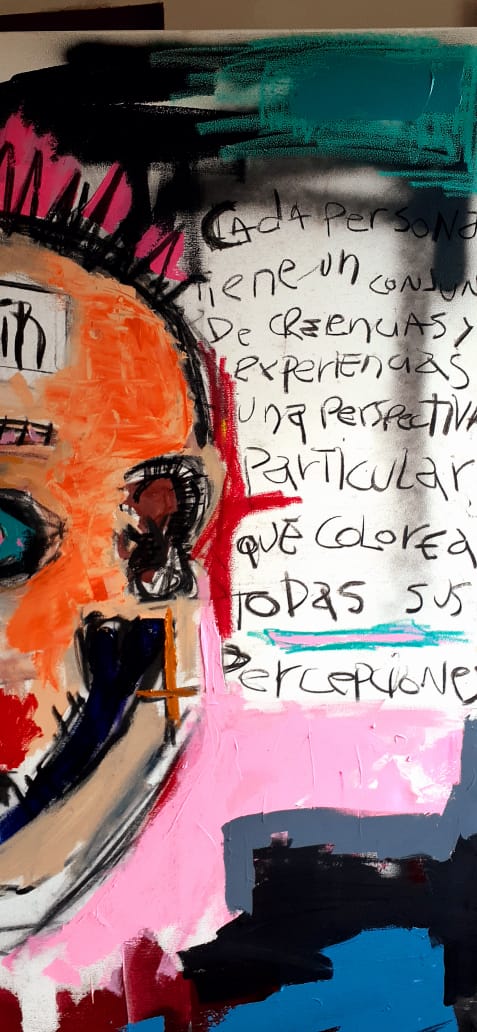 CAdA PersoNA
Tiene un CONJUN
De CREenciAS y
experiencias
una PERSPECTIVA
ParTicular,
QUE COLOREA
TODAS SUS
PercepcioNes